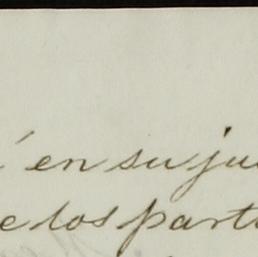 en su ju
e los part